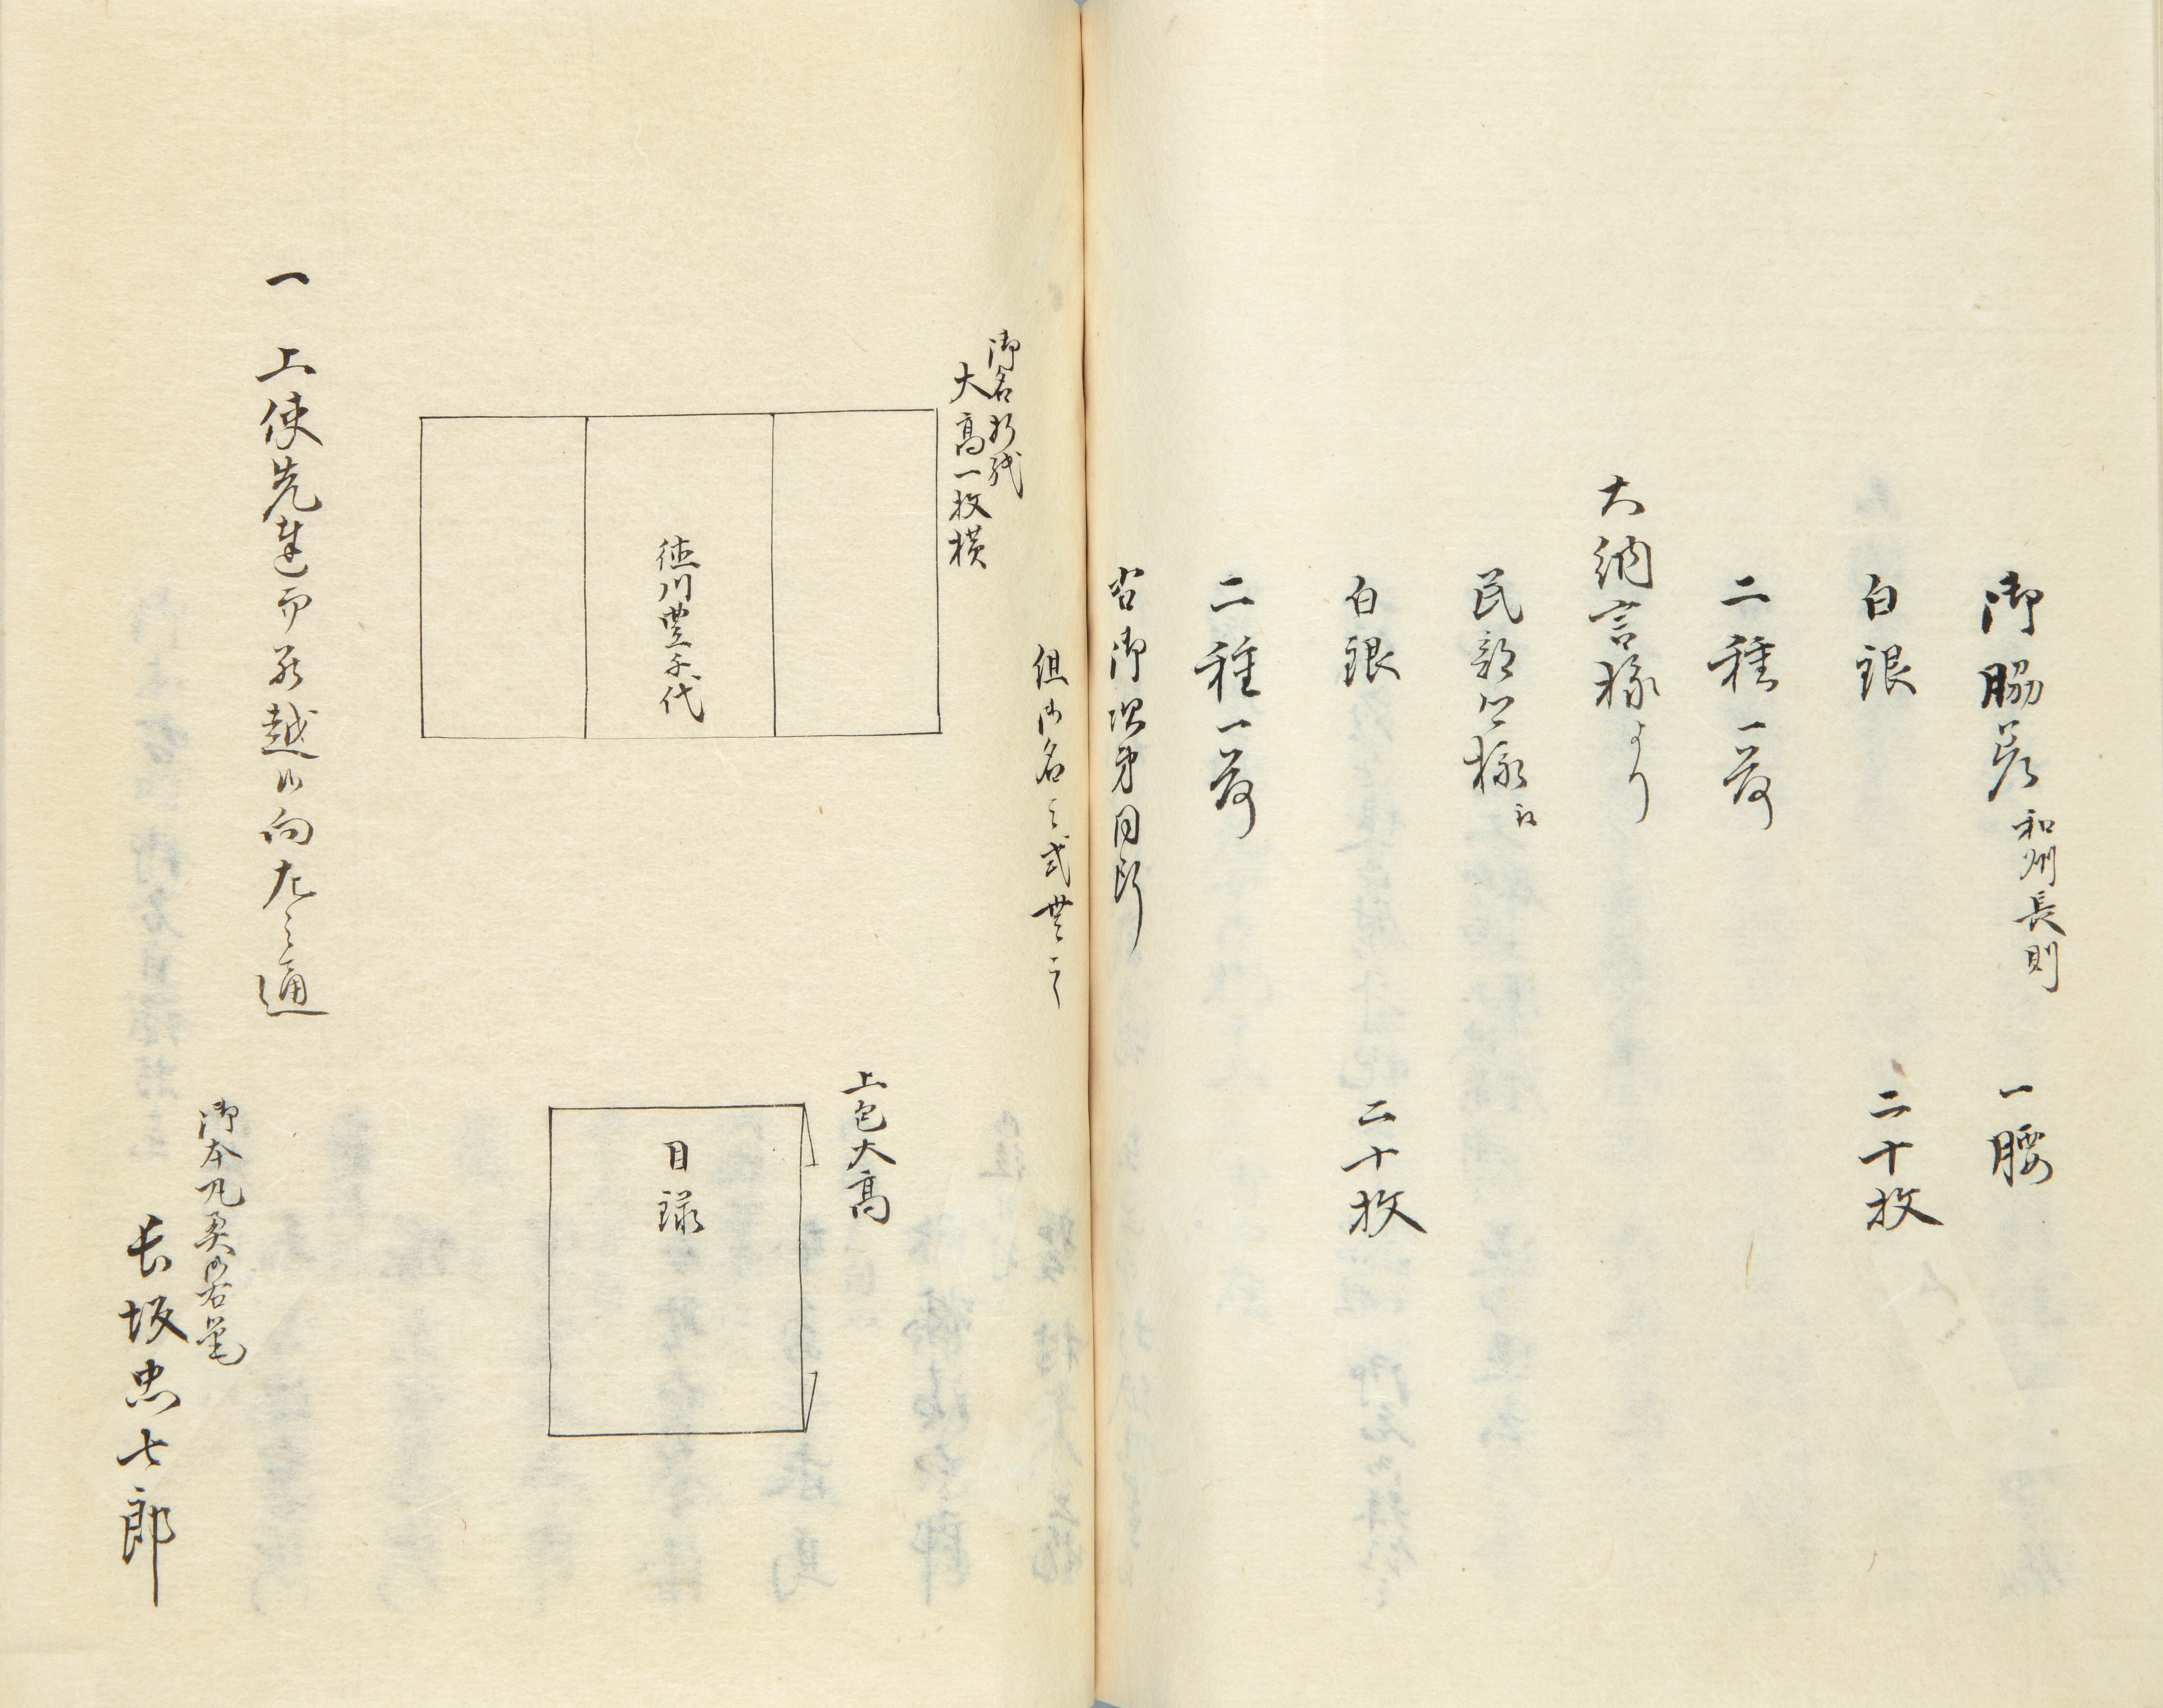 御脇差 和州長則 一腰
白銀 二十枚
二種一荷
大納言様より
民部卿様江
白銀 二十枚
二種一荷
右御次第同断
但御名之式無之
御名折紙
大高一枚横
徳川豊千代
上包大高
目録
一 上使先達而罷越候向左之通
御本丸奥御右筆
長坂忠七郎